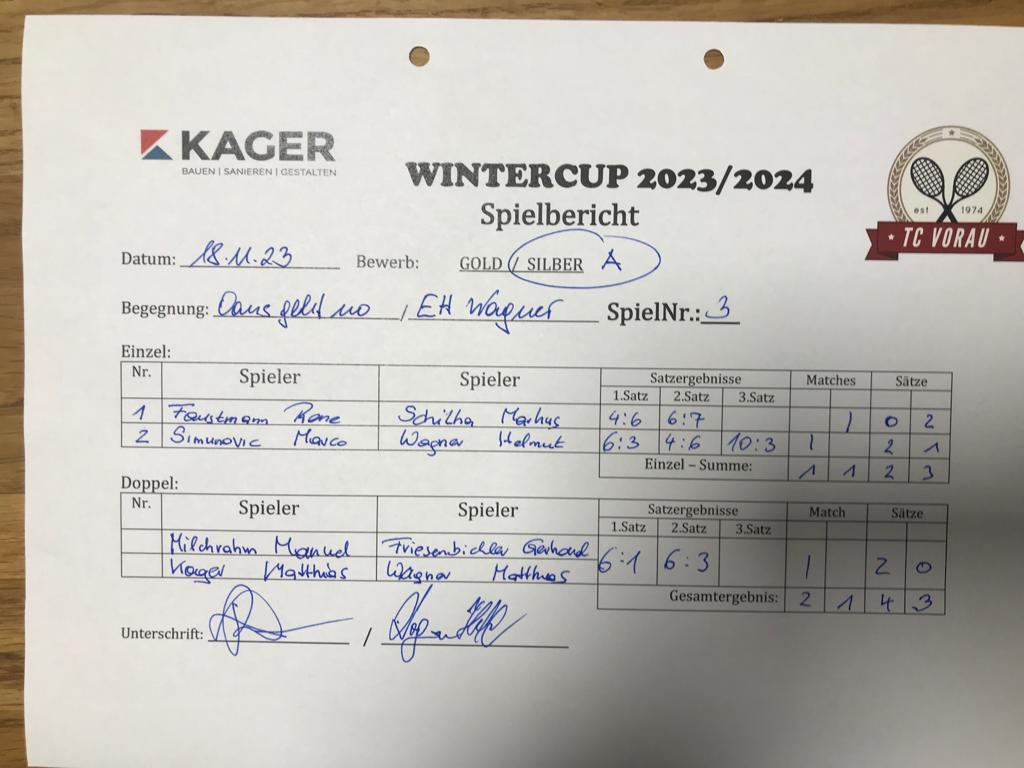 KAGER
BAUEN | SANIEREN | GESTALTEN
WINTERCUP 2023/2024
Spielbericht
est 1974
TC VORAU
Datum: 18.11.23 Bewerb: GOLD / SILBER A
Begegnung: Oans geht no / EH Wagner SpielNr.: 3
Einzel:
Nr. Spieler Spieler Satzergebnisse Matches Sätze
1.Satz 2.Satz 3.Satz
1 Faustmann Rene Markus 4:6 6:7 1 0 2
2 Simunovic Marco Wagner Helmut 6:3 4:6 10:3 1 2 1
Einzel – Summe: 1 1 2 3
Doppel:
Nr. Spieler Spieler Satzergebnisse Match Sätze
1.Satz 2.Satz 3.Satz
Milchrahm Manuel Friesenbichler Gerhard
Kager Matthias Wagner Matthias 6:1 6:3 1 2 0
Gesamtergebnis: 2 1 4 3
Unterschrift: /